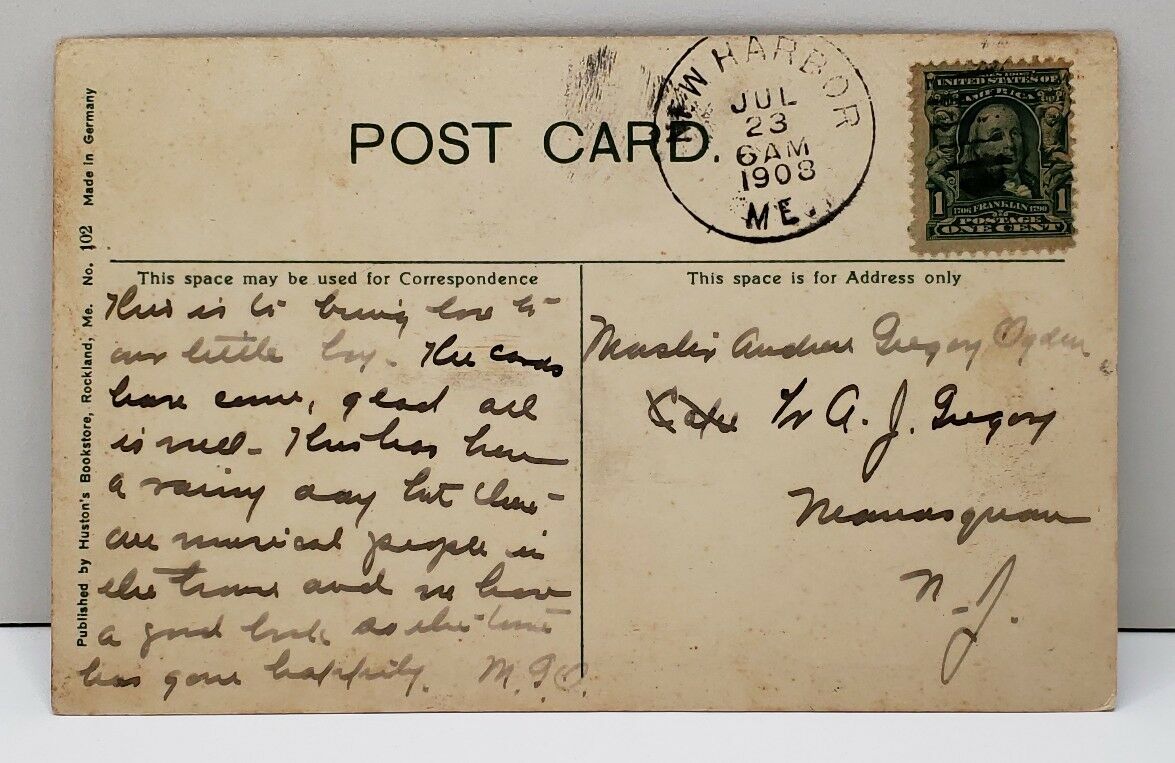 POST CARD.
NEW HARBOR
JUL
23
6 AM
1908
ME.
SERIES 1902
UNITED STATES OF
AMERICA
1 1706 FRANKLIN 1790 1
POSTAGE
ONE CENT
Published by Huston's Bookstore, Rockland, Me. No. 102 Made in Germany
This space may be used for Correspondence
This is to bring love to
our little boy. The cards
have come, glad all
is well - This has been
a rainy day but there
are musical people in
the house and we have
a good book so the time
has gone happily. M.G.O.
This space is for Address only
Master Andrew Gregory Ogden
Care Mr A. J. Gregory
Manasquan
N. J.